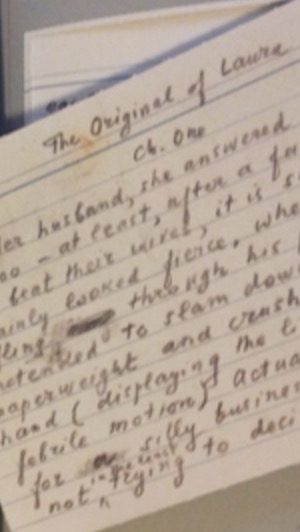 The Original of Laura
Ch. One
her husband, she answered
too — at least, after a fa
beat their wives, it is s
ainly looked fierce, whe
fling through his
retended to slam dow
paperweight and crush
hand (displaying the li
febrile motion) actua
for silly busines
not in trying to deci